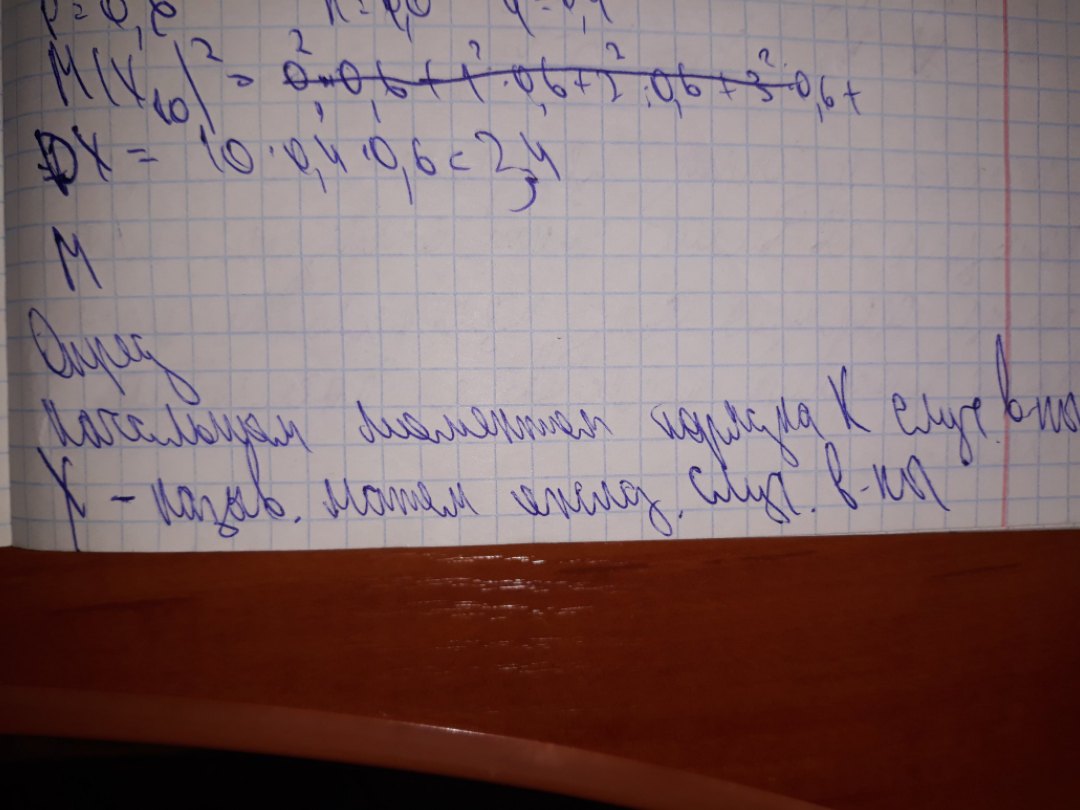 p = 0,6
M(X₁₀)² = 0² · 0,6 + 1² · 0,6 + 2² · 0,6 + 3² · 0,6 +
DX = 10 · 0,4 · 0,6 = 2,4
M
Опред
начальным моментом порядка K случ. в-ны
X - назыв. матем ожид. случ. в-ны